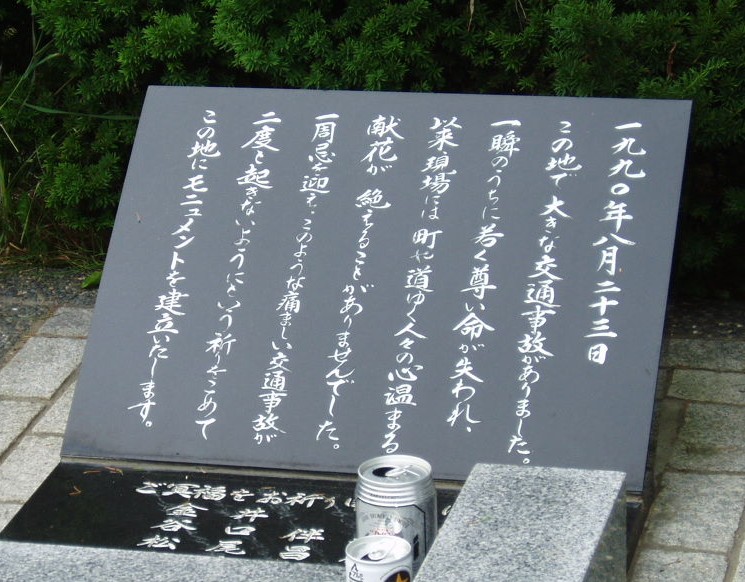 一九九〇年八月二十三日
この地で大きな交通事故がありました。
一瞬のうちに若く尊い命が失われ、
以来現場には町や道ゆく人々の心温まる
献花が 絶えることがありませんでした。
一周忌を迎え、このような痛ましい交通事故が
二度と起きないようにという祈りをこめて
この地にモニュメントを建立いたします。
ご冥福をお祈り
金井 伴
谷口 昌
松尾